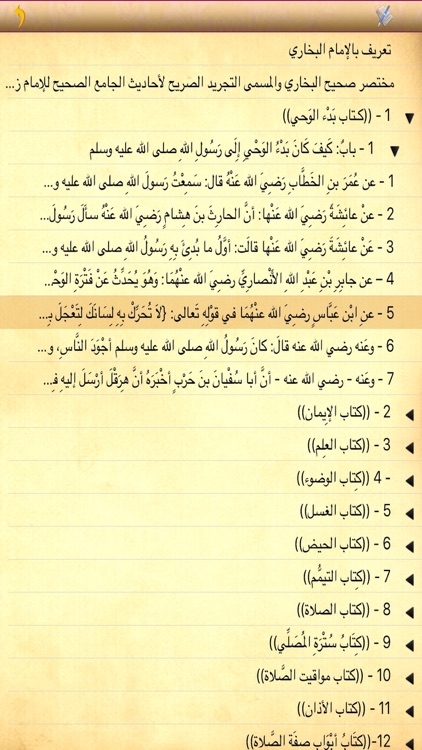 تعريف بالإمام البخاري
مختصر صحيح البخاري والمسمى التجريد الصريح لأحاديث الجامع الصحيح للإمام ز...
1 - ((كـتاب بَدْء الوَحي))
1 - بابُ: كَيفَ كَانَ بَدْءُ الوَحْيِ إِلَى رَسُولِ اللهِ صلى الله عليه وسلم
1 - عن عُمَرَ بنِ الخَطَّابِ رَضِيَ الله عَنْهُ قال: سَمِعْتُ رَسولَ اللهِ صلى الله عليه و...
2 - عنْ عائِشَةَ رَضِيَ الله عَنْها: أنَّ الحارِثَ بنَ هِشامٍ رَضِيَ الله عَنْهُ سألَ رَسُولَ...
3 - عَنْ عائِشَةَ رَضِيَ الله عَنْها قالَت: أوَّلُ ما بُدِئَ بِهِ رَسُولُ اللهِ صلى الله عليه و...
4 – عن جابِرِ بْنِ عَبْدِ اللهِ الأنْصارِيِّ رضِيَ الله عنْهُمَا: وَهُوَ يُحَدِّثُ عَنْ فَتْرَةِ الوَحْ...
5 - عنِ ابْنِ عَبَّاسٍ رضِيَ الله عنْهُمَا في قَوْلِهِ تَعالى: {لاَ تُحَرِّكْ بِهِ لِسَانَكَ لِتَعْجَلَ بِـ...
6 - وعَنه رضي الله عنه قالَ: كانَ رَسُولُ اللهِ صلى الله عليه وسلم أجْوَدَ النَّاسِ، و...
7 - وعَنه - رضي الله عنه - أنَّ أبا سُفْيانَ بنَ حَرْبٍ أخْبَرَهُ أنَّ هِرَقْلَ أرْسَلَ إليهِ فِـ...
2 - ((كتاب الإيمان))
3 - ((كتاب العلم))
- 4 ((كِتاب الوضوء))
5 - ((كتاب الغسل))
6 - ((كتاب الحيض))
7 - ((كتاب التيمُّم))
8 - ((كتاب الصلاة))
9 - ((كِتَابُ سُتْرَةِ المُصَلِّي))
10 - ((كتاب مواقيت الصَّلاة))
11 - ((كتاب الأذان))
12-((كتَابُ أَبْوَابِ صِفَةِ الصَّلاة))